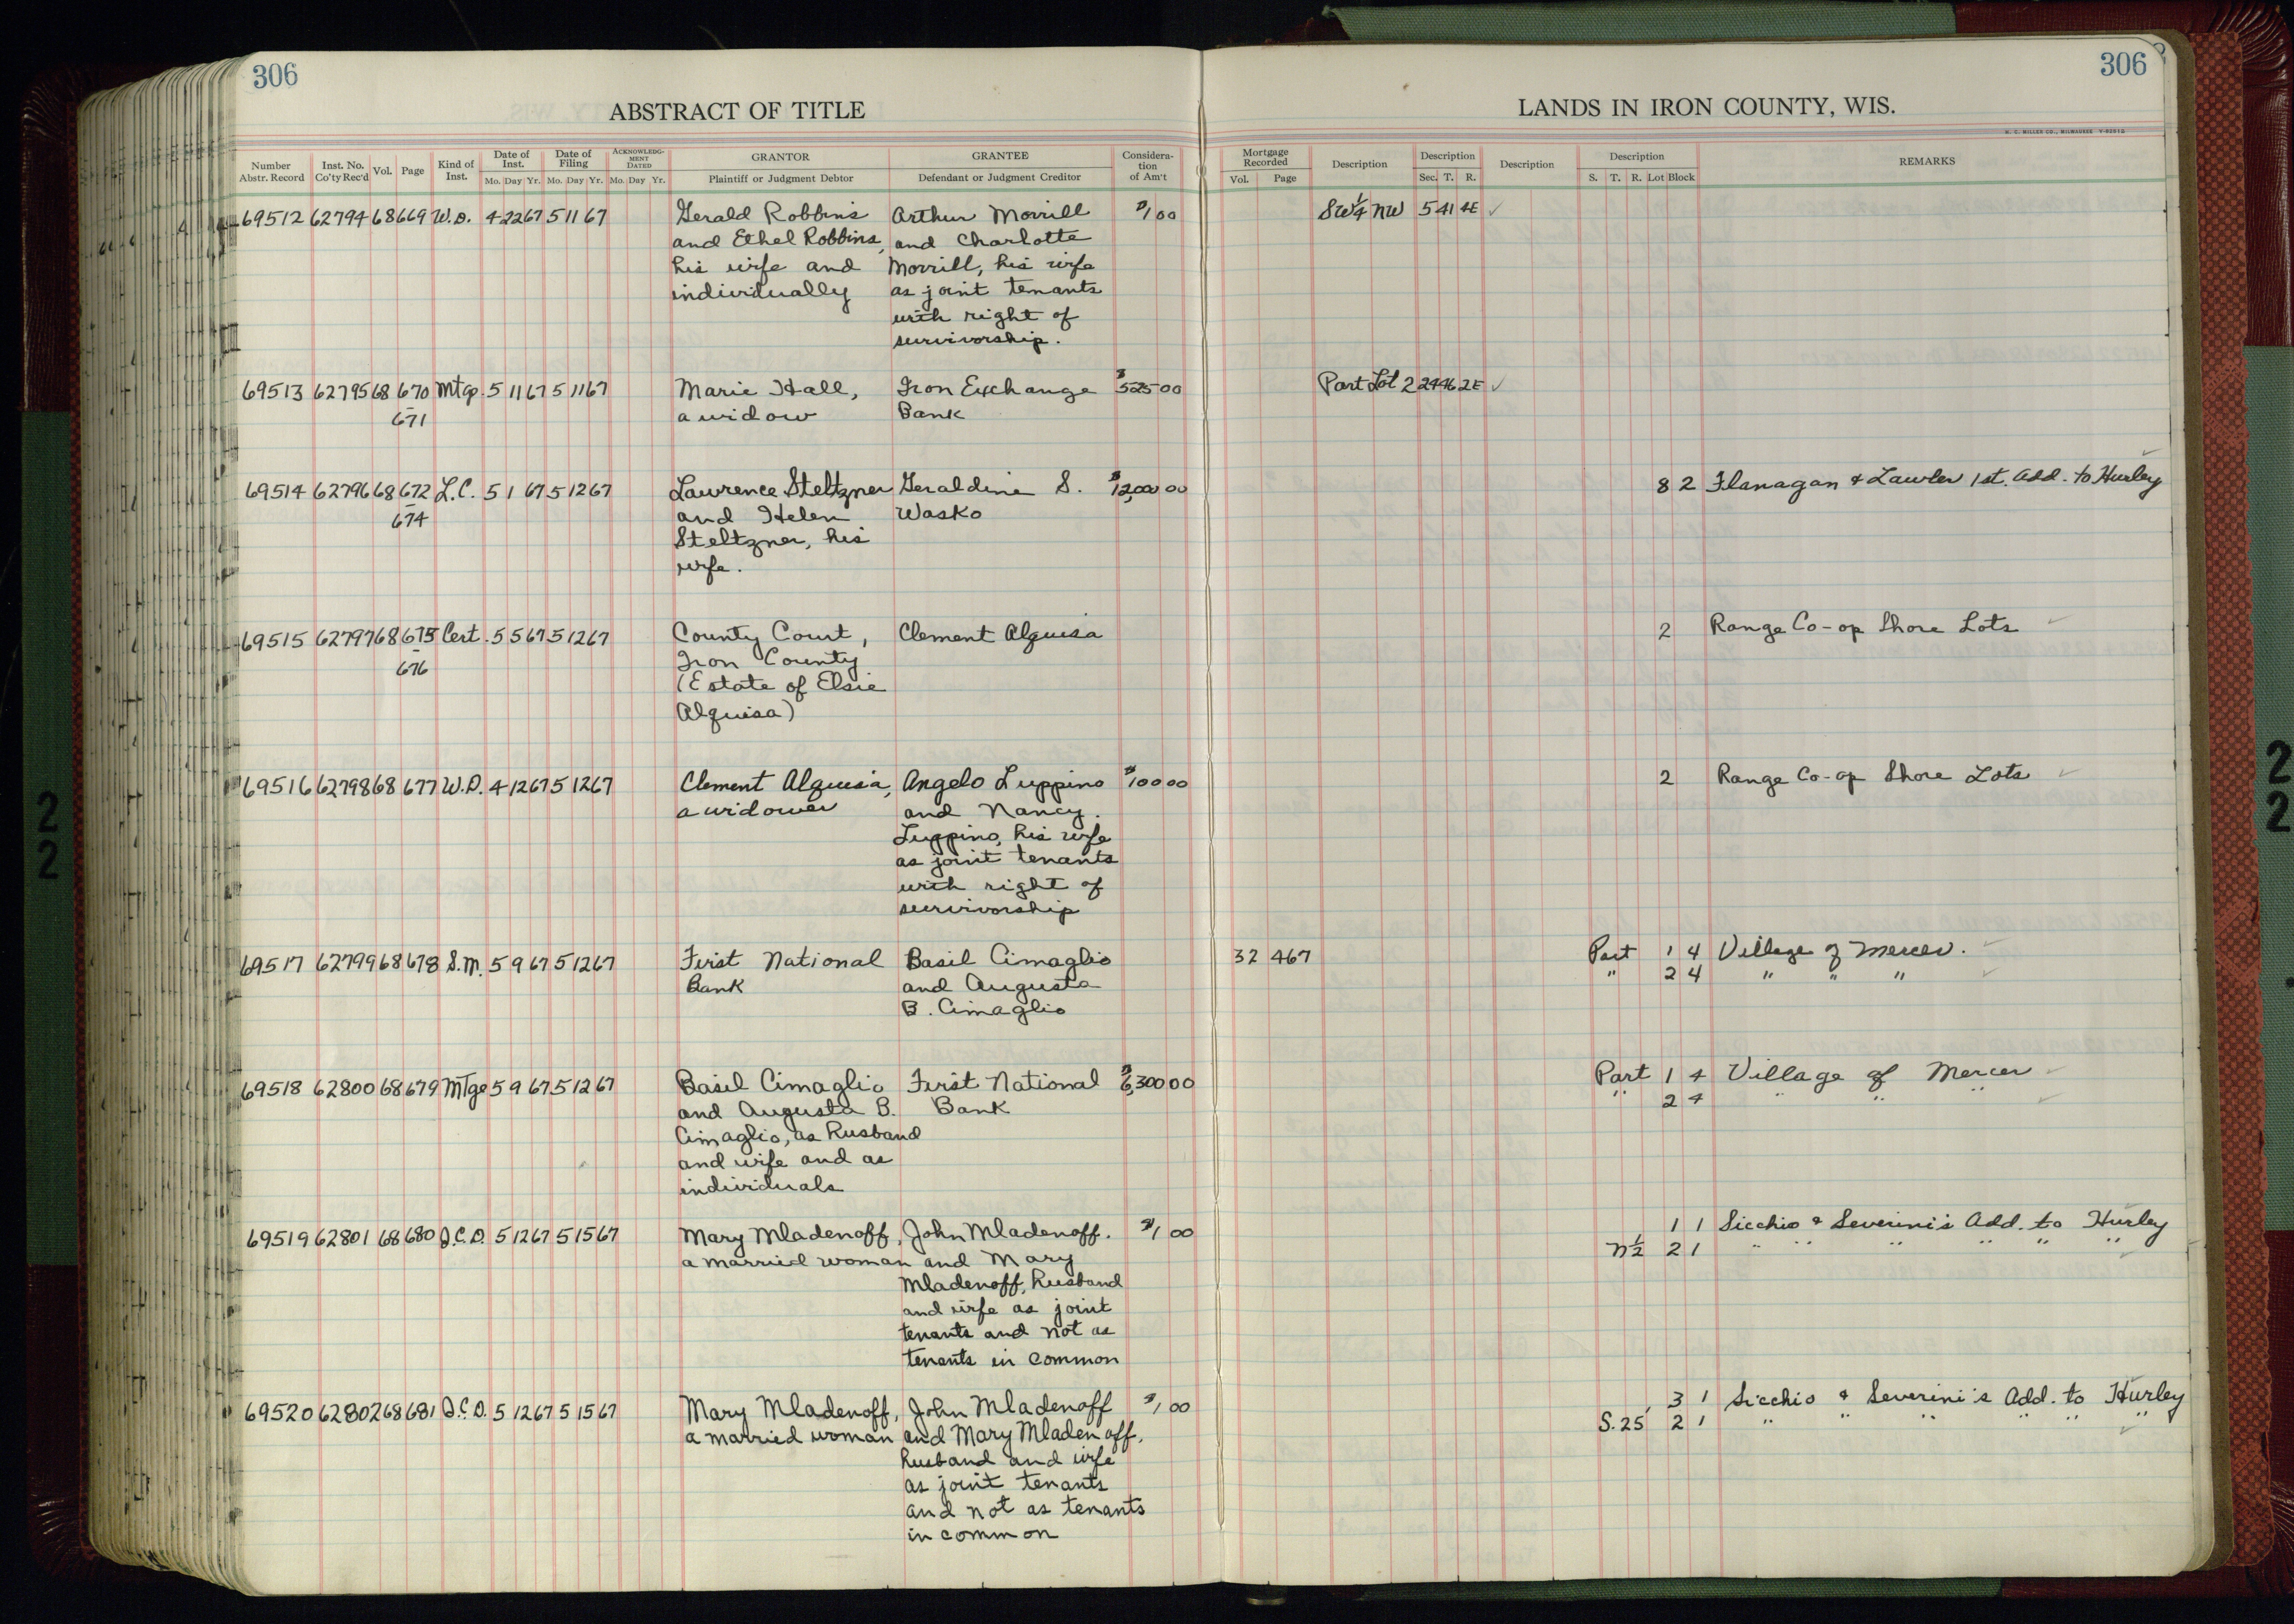 306
306
ABSTRACT OF TITLE
LANDS IN IRON COUNTY, WIS.
H. C. MILLER CO., MILWAUKEE
Number Abstr. Record
Inst. No. Co'ty Rec'd
Vol.
Page
Kind of Inst.
Date of Inst.
Mo. Day Yr.
Date of Filing
Mo. Day Yr.
ACKNOWLEDGMENT DATED
Mo. Day Yr.
GRANTOR
Plaintiff or Judgment Debtor
GRANTEE
Defendant or Judgment Creditor
Consideration of Am't
Mortgage Recorded
Vol. Page
Description
Description
Sec. T. R.
Description
Description
S. T. R. Lot Block
REMARKS
69512 62794 68 669 W.D. 4 22 67 5 11 67 Gerald Robbins Arthur Morrill $1 00 SW¼ NW 5 41 4E ✓
and Ethel Robbins, and Charlotte
his wife and Morrill, his wife
individually as joint tenants
with right of
survivorship.
69513 62795 68 670 Mtg. 5 11 67 5 11 67 Marie Hall, Iron Exchange $525 00 Part Lot 2 24 46 2E ✓
- 671 a widow Bank
69514 62796 68 672 L.C. 5 1 67 5 12 67 Lawrence Steltzner Geraldine S. $12,000 00 8 2 Flanagan & Lawler 1st. Add. to Hurley ✓
- 674 and Helen Wasko
Steltzner, his
wife.
69515 62797 68 675 Cert. 5 5 67 5 12 67 County Court, Clement Alquisa 2 Range Co-op Shore Lots ✓
- 676 Iron County
(Estate of Elsie
Alquisa)
69516 62798 68 677 W.D. 4 12 67 5 12 67 Clement Alquisa, Angelo Luppino $100 00 2 Range Co-op Shore Lots ✓
a widower and Nancy
Luppino, his wife
as joint tenants
with right of
survivorship
69517 62799 68 678 S.M. 5 9 67 5 12 67 First National Basil Cimaglio 32 467 Part 1 4 Village of Mercer. ✓
Bank and Augusta " 2 4 " " " ✓
B. Cimaglio
69518 62800 68 679 Mtge 5 9 67 5 12 67 Basil Cimaglio First National $6,300 00 Part 1 4 Village of Mercer ✓
and Augusta B. Bank " 2 4 " " " ✓
Cimaglio, as husband
and wife and as
individuals
69519 62801 68 680 Q.C.D. 5 12 67 5 15 67 Mary Mladenoff, John Mladenoff. $1 00 1 1 Sicchio & Severini's Add. to Hurley ✓
a married woman and Mary N½ 2 1 " " " " " " ✓
Mladenoff, husband
and wife as joint
tenants and not as
tenants in common
69520 62802 68 681 Q.C.D. 5 12 67 5 15 67 Mary Mladenoff, John Mladenoff $1 00 3 1 Sicchio & Severini's Add. to Hurley ✓
a married woman and Mary Mladenoff, S. 25 2 1 " " " " " " ✓
husband and wife
as joint tenants
and not as tenants
in common
22
22